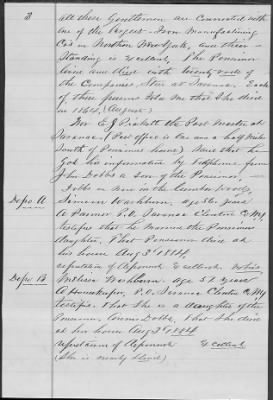 3
all these Gentlemen are Connected with
one of the largest Iron Manufacturing
Co's in Northern New York, and their
Standing is Excellent, The Pensioner
lived and died with twenty rods of
the Companies Store at
of these gentlemen told me that she died
in 1884 (August)
Mr E. J. Pickett the Post Master at
(Post office is one and a half miles
South of Pensioner's home) said that he
Got his information by telephone from
John Dobbs a son of the Pensioner,
Dobbs is now in the lumber woods
Depo A
Simeon Washburn, age 56 years
a Farmer P.O. Clinton Co NY
testifies that he married the Pensioner's
daughter, That Pensioner died at
his house Aug 3d 1884,
reputation of deponent Excellent.
Depo B.
Melissa Washburn, age 52 years
a Housekeeper, P.O. Clinton Co NY
testifies, That she is a daughter of the
Pensioner, Dobbs, That she died
at her house Aug 3d 1884
reputation of deponent Excellent
(She is nearly blind)